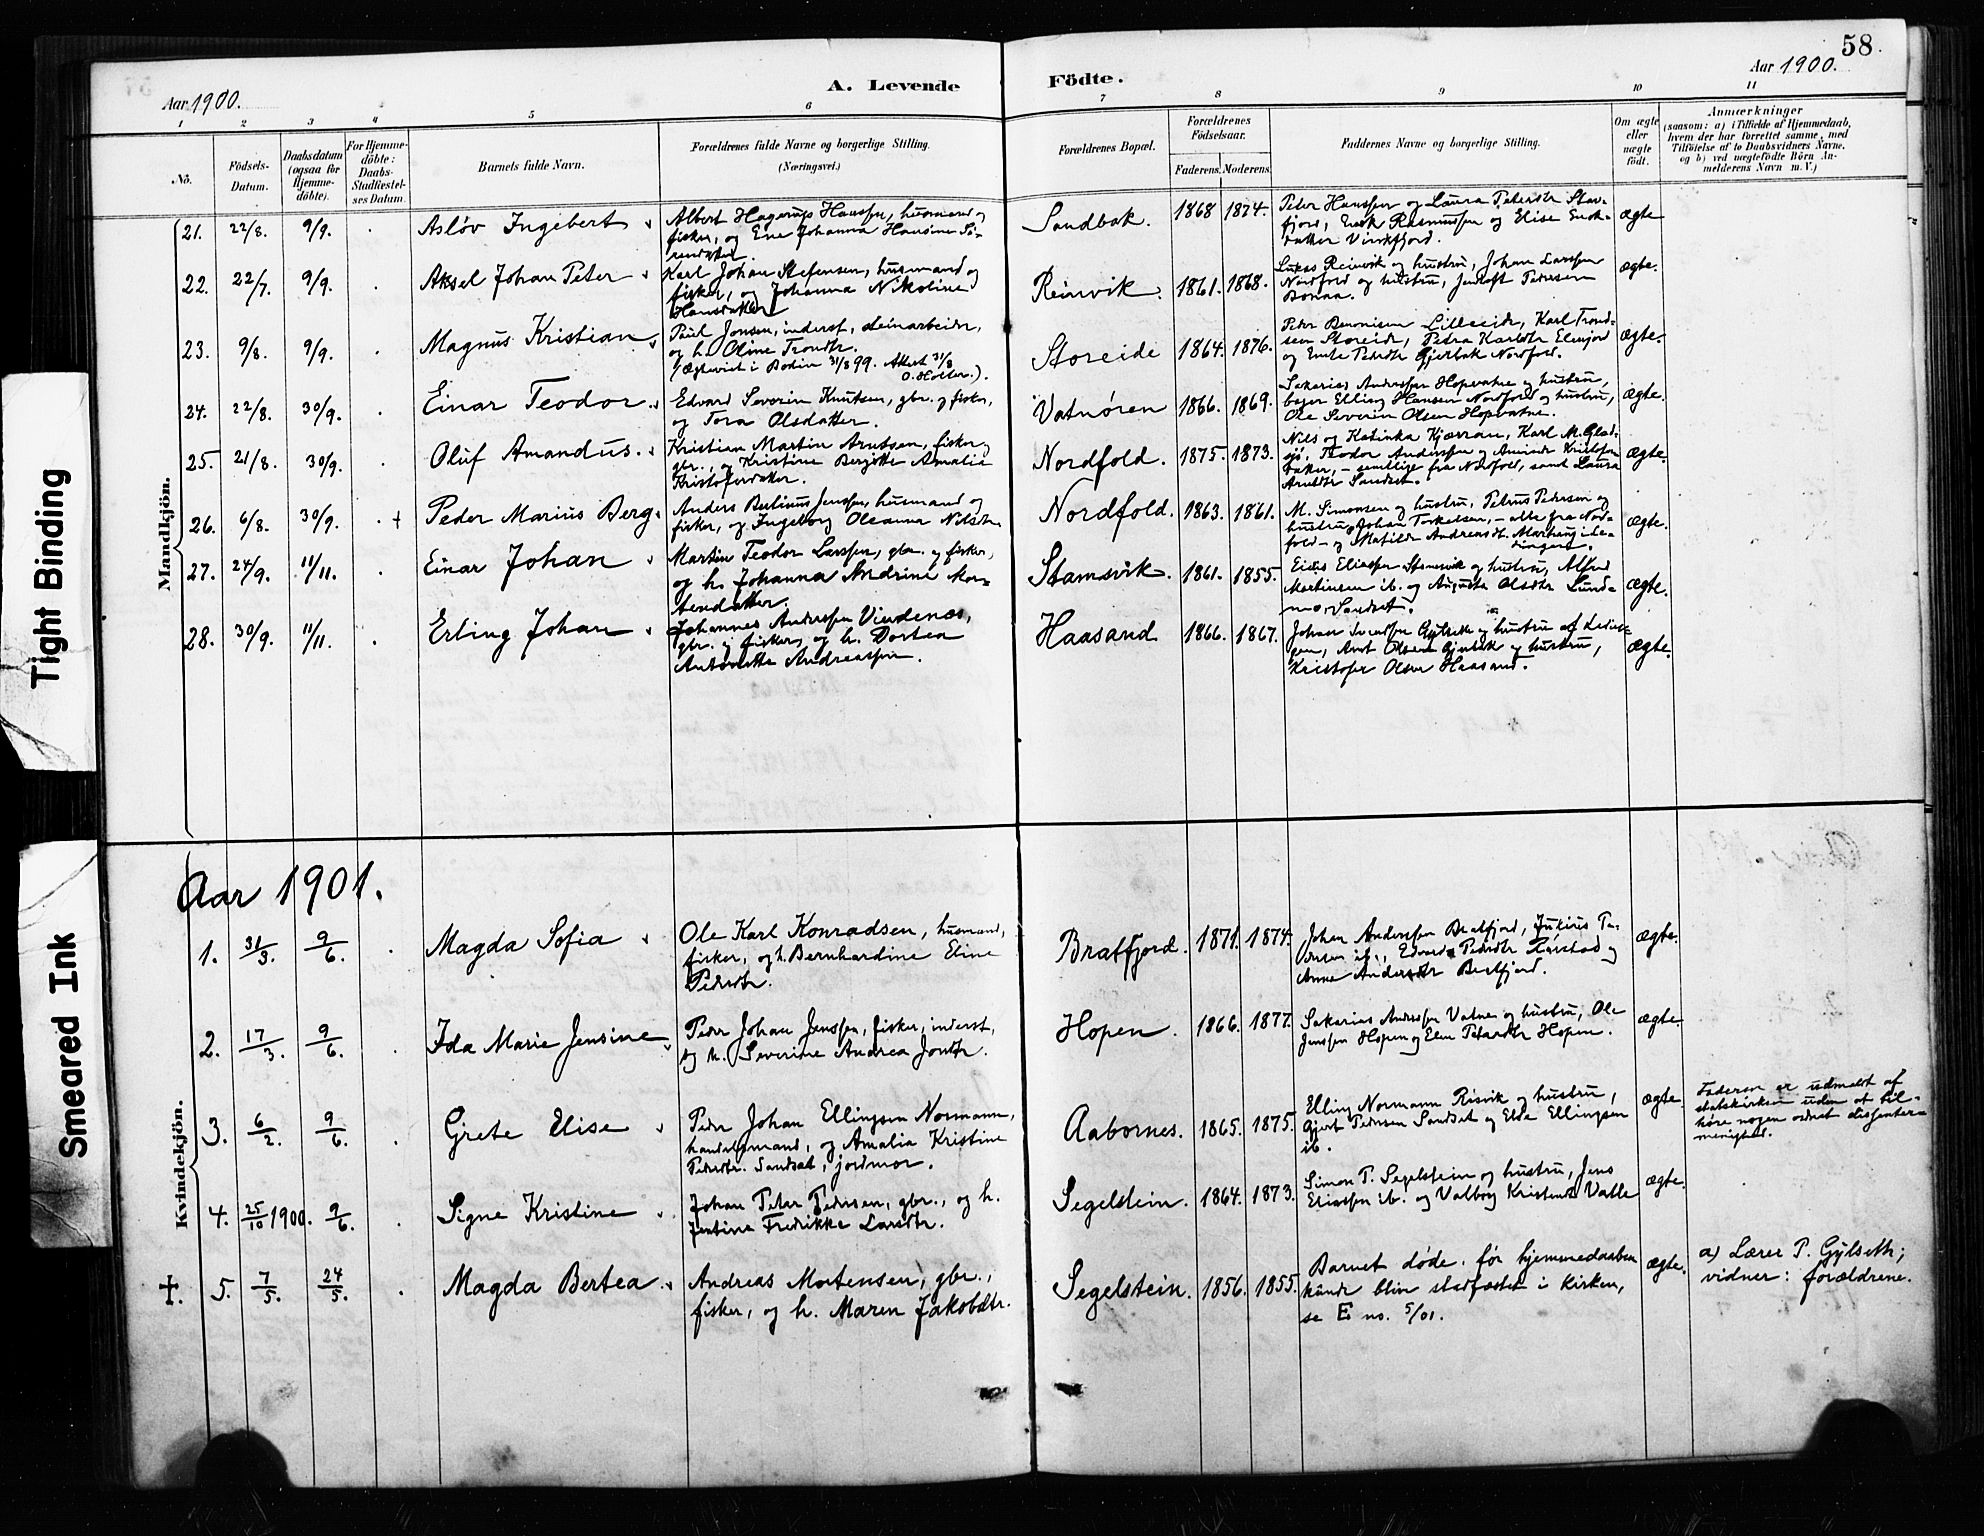 58.
Aar 1900.
A. Levende Födte.
Aar 1900.
1 2 3 4 5 6 7 8 9 10 11
Nö.
Födsels-Datum.
Daabsdatum (ogsaa for Hjemme-döbte).
For Hjemme-döbte: Daabs-Stadfæstel-ses Datum.
Barnets fulde Navn.
Forældrenes fulde Navne og borgerlige Stilling.
(Næringsvei.)
Forældrenes Bopæl.
Forældrenes Födselsaar.
Faderens. Moderens.
Faddernes Navne og borgerlige Stilling.
Om ægte eller uægte födt.
Anmærkninger
(saasom: a) i Tilfælde af Hjemmedaab,
hvem der har forrettet samme, med
Tilföielse af to Daabsvidners Navne,
og b) ved uægtefödte Börn An-
melderens Navn m. V.)
Mandkjön.
21. 22/8. 9/9. Asløv Ingebert
Albert Hagerup Hanssen, husmand og
fisker, og Ene Johanna Hansine Sö-
rensdatter.
Sandbak. 1868 1874.
Peter Hanssen og Laura Petersdtr Stor-
fjord, Enok Rasmussen og Elise Enoks-
datter Vinkfjord.
ægte
22. 22/7. 9/9. Aksel Johan Peter
Karl Johan Stefensen, husmand og
fisker, og Johanna Nikoline
Hansdatter
Reinvik. 1861. 1868.
Lukas Reinvik og hustru, Johan Larssen
Nordfold og hustru, Pedersen
ægte.
23. 9/8. 9/9. Magnus Kristian
Paul Jonsen, inderst, leiarbeider,
og h. Oline Trondtr.
(Ægteviet i Bodin 31/8 99. Attest 31/8
O. Holter.).
Storeide 1864. 1876.
Peter Benonisen Lilleeide, Karl Trond-
sen Storeide, Petra Karldtr
og Pedrdtr Gjerbak Nordfold.
ægte.
24. 22/8. 30/9. Einar Teodor
Edvard Severin Knutsen, gbr. og fisker,
og Tora Olsdatter.
Vatnøren 1866. 1869.
Sakarias Anderssen Hopvatne og hustru,
Elling Hansen Nordfold og hustru,
Ole Severin Olsen Hopvatne.
ægte.
25. 21/8. 30/9. Oluf Amandus.
Kristian Martin Arntsen, fisker og
gbr., og Kristine Bergitte Amalia
Kristofersdatter.
Nordfold. 1875. 1873.
Nils og Katinka Kjærran, Karl M. Glad-
sjø, Teodor Anderssen og Kristofer-
datter, – samtlige fra Nordfold, samt Laura
Arntdtr Sandset.
ægte.
26. 6/8. 30/9. + Peder Marius Berg.
Anders Bertinus Jenssen, husmand og
fisker, og Ingeborg Oleanna Nilsdtr.
Nordfold. 1863. 1861.
M. Simonsen og hustru, Petrus Pedersen og
hustru, Johan Torkelsen, – alle fra Nord-
fold – og Matilde Andreas H.
ægte.
27. 24/9. 11/11. Einar Johan
Martin Teodor Larssen, gbr. og fisker,
og h. Johanna Andrine Mor-
tensdatter.
Stamsvik. 1861. 1855.
Elias Eliassen Stamsvik og hustru, Alfred
Martinsen ib. og Augusta Olsdtr Lund-
mo, Sandset.
ægte.
28. 30/9. 11/11. Erling Johan
Johannes Anderssen Vindenes,
gbr. og fisker, og h. Dortea
Antonette Andreassen.
Haasand 1866. 1867.
Johan Gylseth og hustru af Ledin-
gen, Arnt Olsen og hustru,
Kristofer Olsen Haasand.
ægte.
Aar 1901.
Kvindekjön.
1. 31/3. 9/6. Magda Sofia
Ole Karl Konradsen, husmand,
fisker, og h. Bernhardine Eline
Pedrdtr.
Bratfjord. 1871. 1874.
Johan Anderssen Bratfjord, Julius Pe-
dersen ib., Edvarda Pedrdtr Rørstad og
Anna Andersdtr Bratfjord.
ægte.
2. 17/3. 9/6. Ida Marie Jensine
Peder Johan Jenssen, fisker, inderst,
og h. Severine Andrea Jondtr.
Hopen. 1866. 1877.
Sakarias Anderssen Vatne og hustru, Ole
Jenssen Hopen og Elen Pedrdtr Hopen.
ægte.
3. 6/2. 9/6. Grete Elise
Peder Johan Ellingsen Normann,
handelsmand, og Amalia Kristine
Pedrdtr. Sandset, jordmor.
Aabornes. 1865. 1875.
Elling Normann Risvik og hustru,
Gjert Pedersen Sandset og Elde Ellingsen
ib.
ægte.
Faderen er udmeldt af
statskirken uden at til-
høre nogen ordnet dissenter-
menighed.
4. 25/10 1900. 9/6. Signe Kristine
Johan Peter Pedersen, gbr., og h.
Jentine Fredrikke Larsdtr.
Segelstein. 1864. 1873.
Simon P. Segelstein og hustru, Jens
Eliassen ib. og Valborg Kristende Valle
ægte.
†. 5. 7/5. 24/5. Magda Bertea.
Andreas Mortensen, gbr.,
fisker, og h. Maren Jakobdtr.
Segelstein. 1856. 1855.
Barnet døde før hjemmedaaben
kunde blive stadfæstet i kirken,
se E no. 5/01.
ægte.
a) Lærer P. Gylseth;
vidner: forældrene.
Tight Binding
Smeared Ink